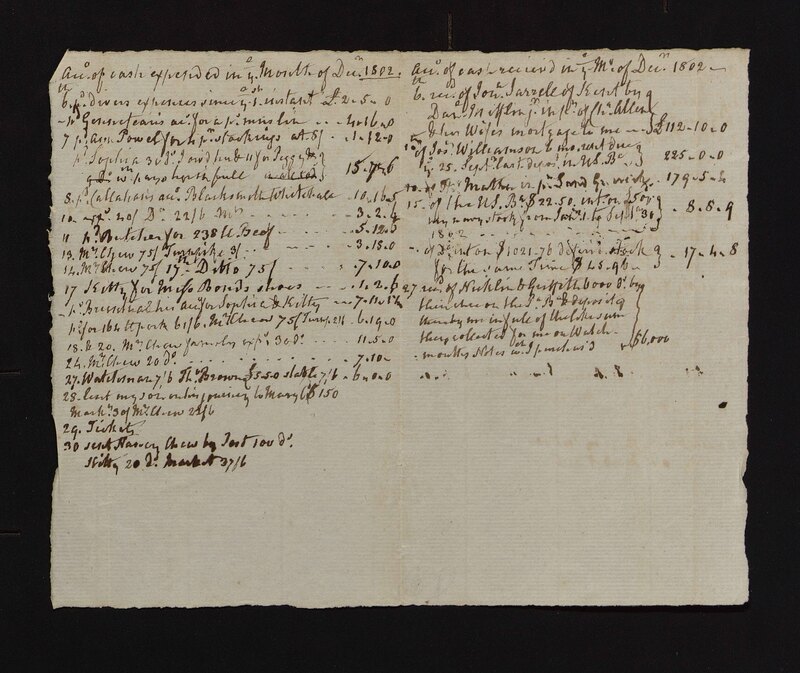 Acc.t of cash expended in y.e Month of Dec.r 1802.
6. p.d divers expences since y.e 1.st instant £ 2-5-0
p.d acc.t for a p.s muslin 4-16-0
7 p.d Powel for p.r stockings at 8/ - 1-12-0
p.d Sophia 30 for Peggy
15.7-6
8. p.d Callahan's acc.t Blacksmith Whitehall - 10.16-
10. exp.s 20 D.s 22/6 M.rs - 3-2-
11 p.d Butcher for 238 lb Beef - 5-12-
13. M.rs Chew 75/ Turnpike 3/ - 3.18.0
14. M.rs Chew 75/ 17.th Ditto 75/ - 7.10.0
17 Kitty for Miss Bonds shoes - 1.2.6
p.d his acc.t for Sophia & Kitty - 7-11-
p.d for 164 lb pork 61/6. M.rs Chew 75/ Turnp. 2/6 - 6.19.0
18. & 20. M.rs Chew family exp.s 30 d.s - 11.5.0
24. M.rs Chew 20 d.s - 7.10-
27. Watchman 7/6 Th.s Brown $5.50 stable 7/6 - 6-0-0
28. lent my son on his journey to Mary.d $150
Mark.t 30/ M.rs Chew 22/6
29. Tickets
30 sent Harry Chew by Post 100 d.s
Kitty 20 d.s Market 37/6
Acc.t of cash received in y.e M.o of Dec.r 1802
6. rec.d of Jon.a Jarrell of Kent by
Dan.l Mifflin j.r in p.t of Ch.s Allen
& his Wifes mortgage to me - £112-10-0
of Jos. Williamson to me rent due
y.e 25. Sept.r last depos.d in US. B.k 225-0-0
of Th.s Mather in p.t 179-5-2
15. of the US. B.k $22.50 int. on $
my navy stock from Jan.y 1 to Sept.r 30 - 8-8-9
1802
of D.o int on $1021.76 deferr'd stock
for the same Time $45.96 - 17-4-8
27 rec.d of Nicklin & Griffith 6000 d.s by
their check on the P.a B.k & deposited
thereby me in full of the like sum
they collected for me on Watch
mouths Notes w.ch I purchas'd $6,000